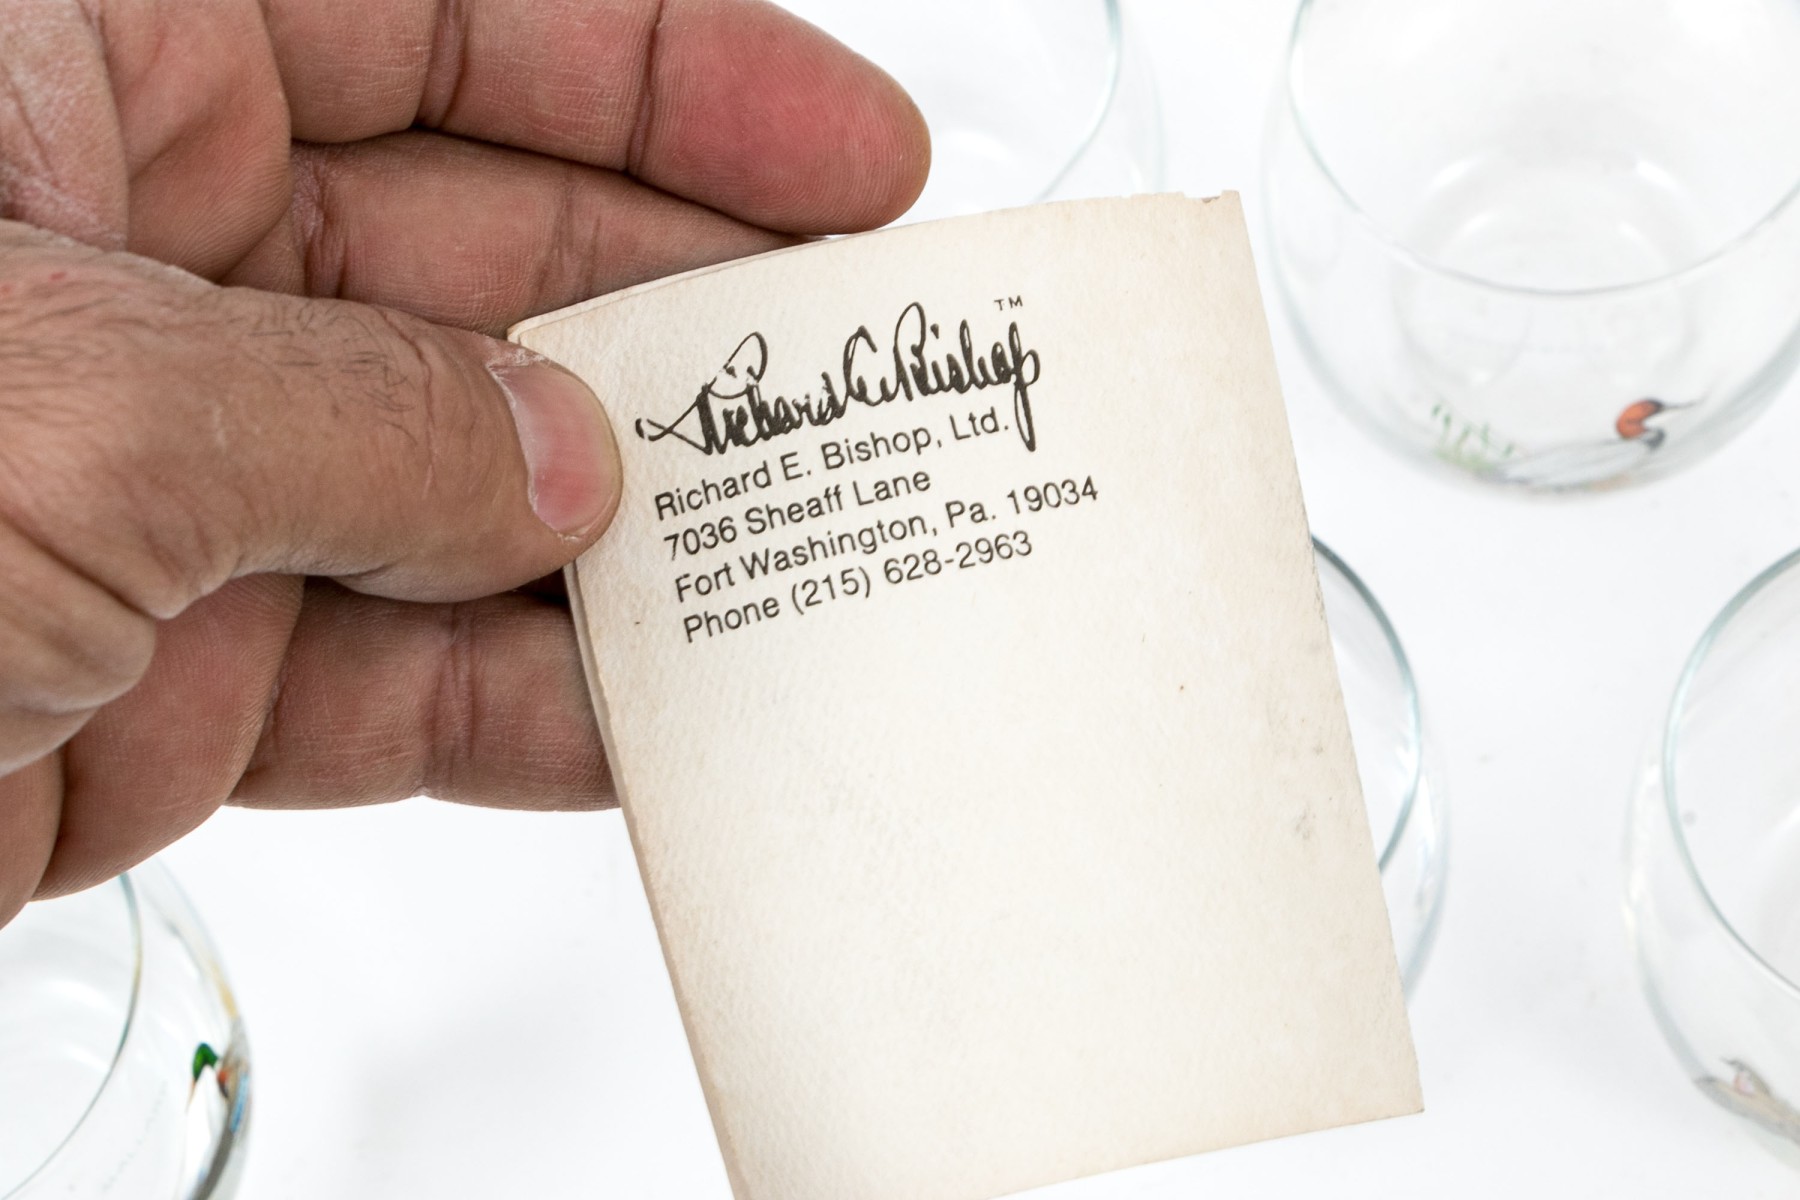 Richard E. Bishop ™
Richard E. Bishop, Ltd.
7036 Sheaff Lane
Fort Washington, Pa. 19034
Phone (215) 628-2963